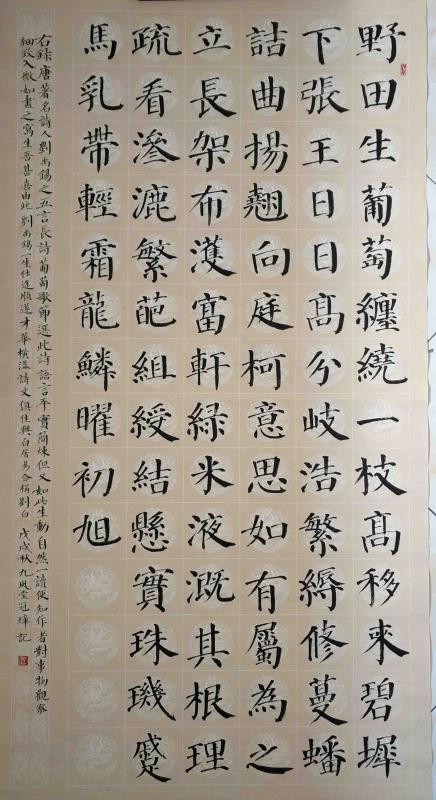 野田生葡萄纏繞一枝高移來碧墀
下張王日日高分岐浩繁縟修蔓蟠
詰曲揚翹向庭柯意思如有屬為之
立長架布濩富軒綠米液溉其根理
疏看滲漉繁葩組綬結懸實珠璣蹙
馬乳帶輕霜龍鱗曜初旭
右錄唐著名詩人劉禹錫之五言長詩葡萄歌節選此詩語言平實簡煉但又如此生動自然一讀便知作者對事物觀察
細致入微如畫之寫生吾甚喜由此劉禹錫一生仕途順遂才華橫溢詩文俱佳與白居易合稱劉白戊戌秋九堂冠記